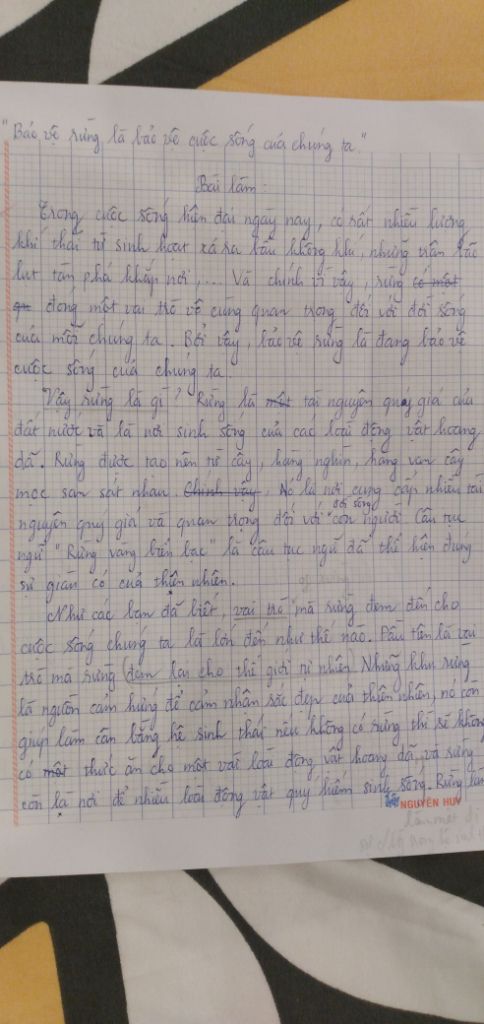 "Bảo vệ rừng là bảo vệ cuộc sống của chúng ta."
Bài làm:
Trong cuộc sống hiện đại ngày nay, có rất nhiều lượng
khí thải từ sinh hoạt xả ra bầu không khí, những trận bão
lụt tàn phá khắp nơi,... Và chính vì vậy, rừng có một
đóng một vai trò vô cùng quan trọng đối với đời sống
của mỗi chúng ta. Bởi vậy, bảo vệ rừng là đang bảo vệ
cuộc sống của chúng ta.
Vậy rừng là gì? Rừng là một tài nguyên quý giá của
đất nước và là nơi sinh sống của các loài động vật hoang
dã. Rừng được tạo nên từ cây, hàng nghìn, hàng vạn cây
mọc san sát nhau. Chính vậy, Nó là nơi cung cấp nhiều tài
nguyên quý giá và quan trọng đối với đời sống con người. Câu tục
ngữ "Rừng vàng biển bạc" là câu tục ngữ đã thể hiện đúng
sự giàu có của thiên nhiên.
Như các bạn đã biết, vai trò mà rừng đem đến cho
cuộc sống chúng ta là lớn đến như thế nào. Đầu tiên là vai
trò mà rừng (đem lại cho thế giới tự nhiên). Những khu rừng
là nguồn cảm hứng để cảm nhận sắc đẹp của thiên nhiên, nó còn
giúp làm cân bằng hệ sinh thái nếu không có rừng thì sẽ không
có một thức ăn cho một vài loài động vật hoang dã, và rừng
còn là nơi để nhiều loài động vật quý hiếm sinh sống. Rừng
NGUYÊN HUY